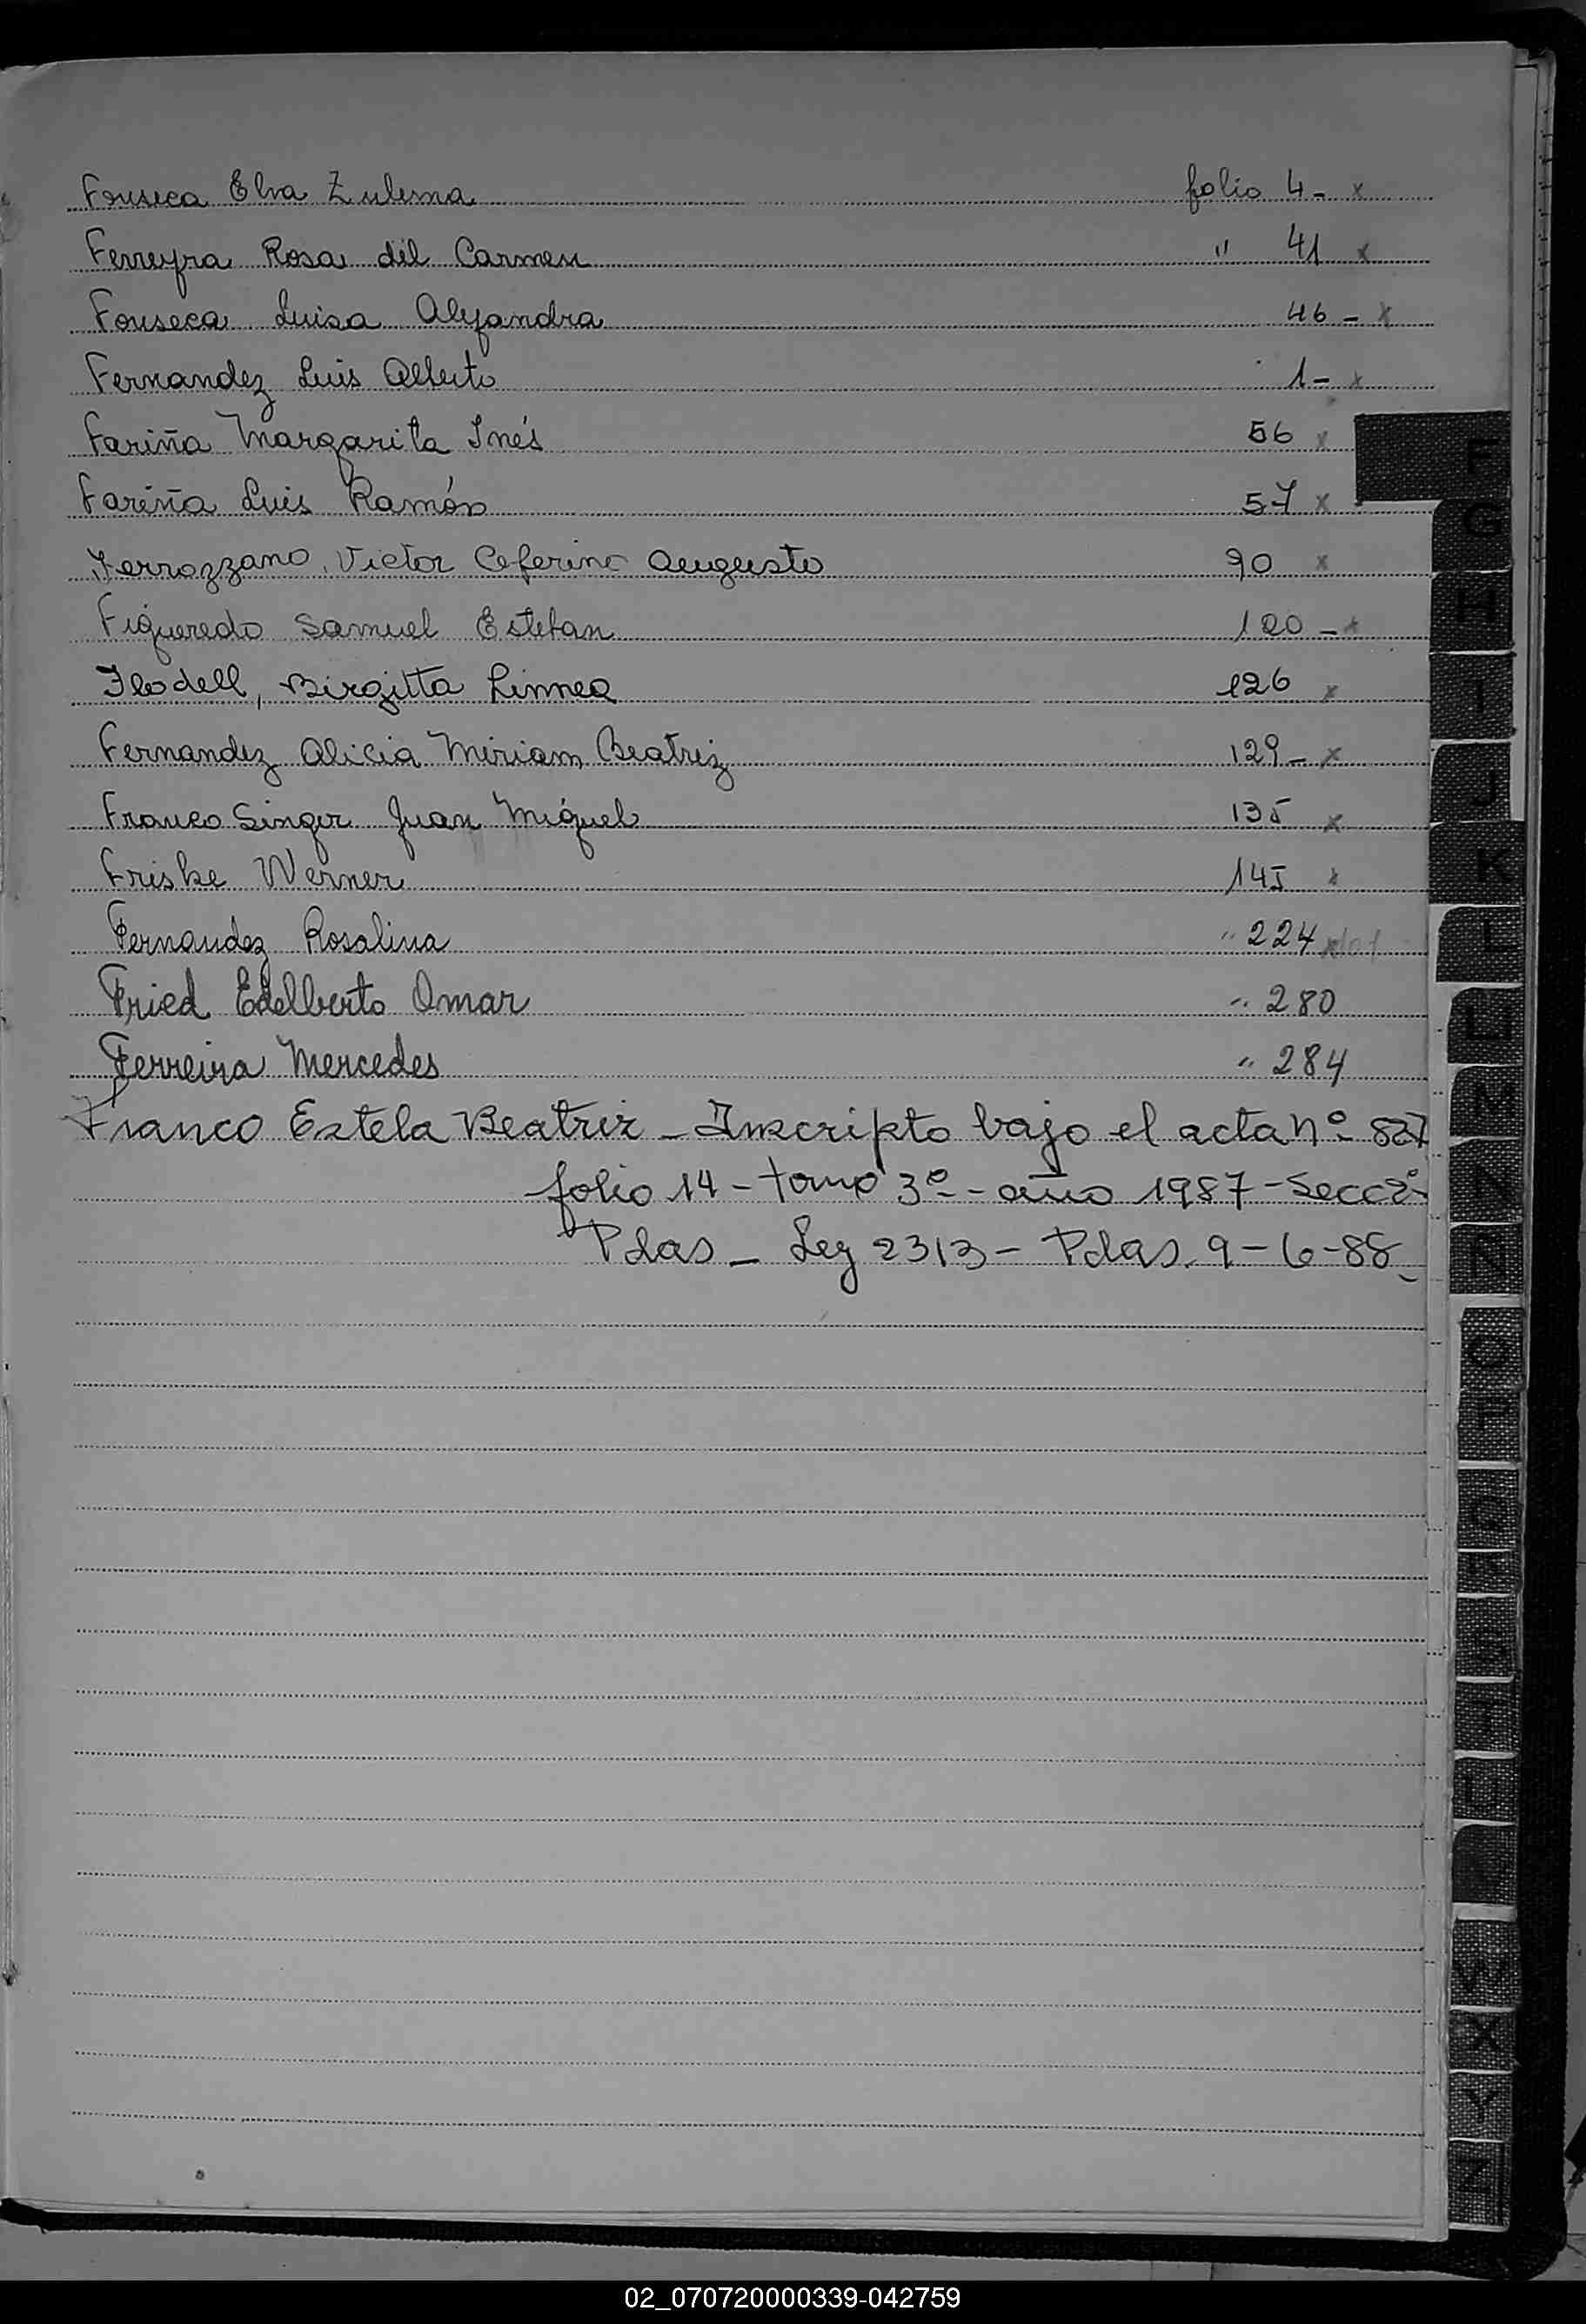 Fonseca Elva Zulema folio 4 - x
Ferreyra Rosa del Carmen " 41 x
Fonseca Luisa Alejandra 46 - x
Fernandez Luis Alberto 1 - x
Fariña Margarita Inés 56 x
Fariña Luis Ramón 57 x
Ferrozzano, Victor Ceferino Augusto 90 x
Figueredo Samuel Esteban 120 - x
Flodell, Birgitta Linnea 126 x
Fernandez Alicia Miriam Beatriz 129 - x
Franco Singer Juan Miguel 135 x
Friske Werner 145 x
Fernandez Rosalina " 224
Fried Edelberto Omar " 280
Ferreira Mercedes " 284
Franco Estela Beatriz - Inscripto bajo el acta nº 827
folio 14 - tomo 3º - año 1987 - Secc 2ª
Pdas - Ley 2313 - Pdas. 9-6-88
F
G
H
I
J
K
L
LL
M
N
Ñ
O
P
Q
R
S
T
U
W
X
Y
Z
02_070720000339-042759